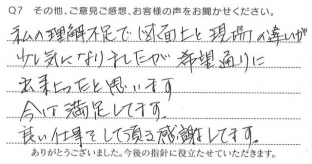 Q7 その他、ご意見ご感想、お客様の声をお聞かせください。
私の理解不足で図面上と現場の違いが
少し気になりましたが希望通りに
出来上ったと思います
今は満足してます。
良い仕事をして頂き感謝してます。
ありがとうございました。今後の指針に役立たせていただきます。